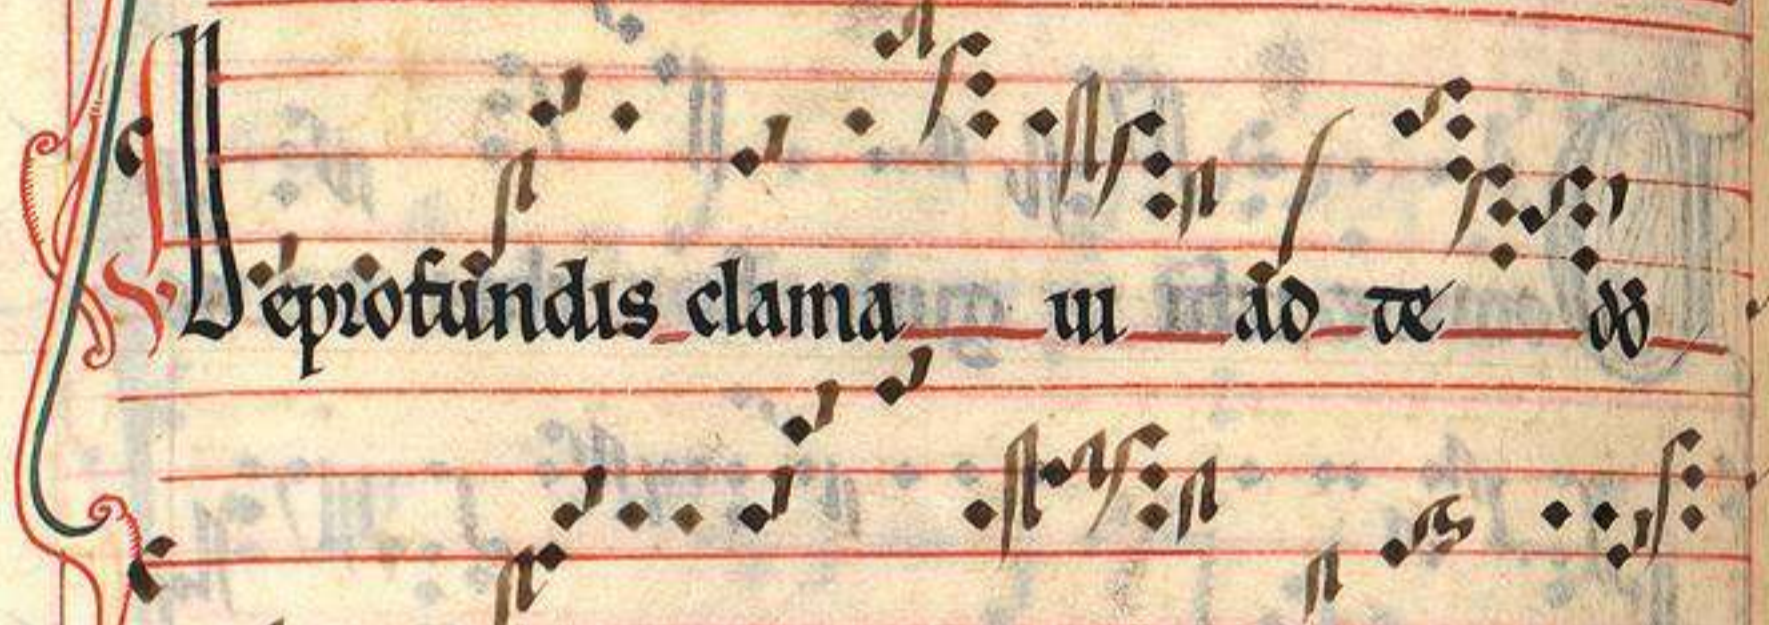 ℣ De profundis clama ui ad te dō